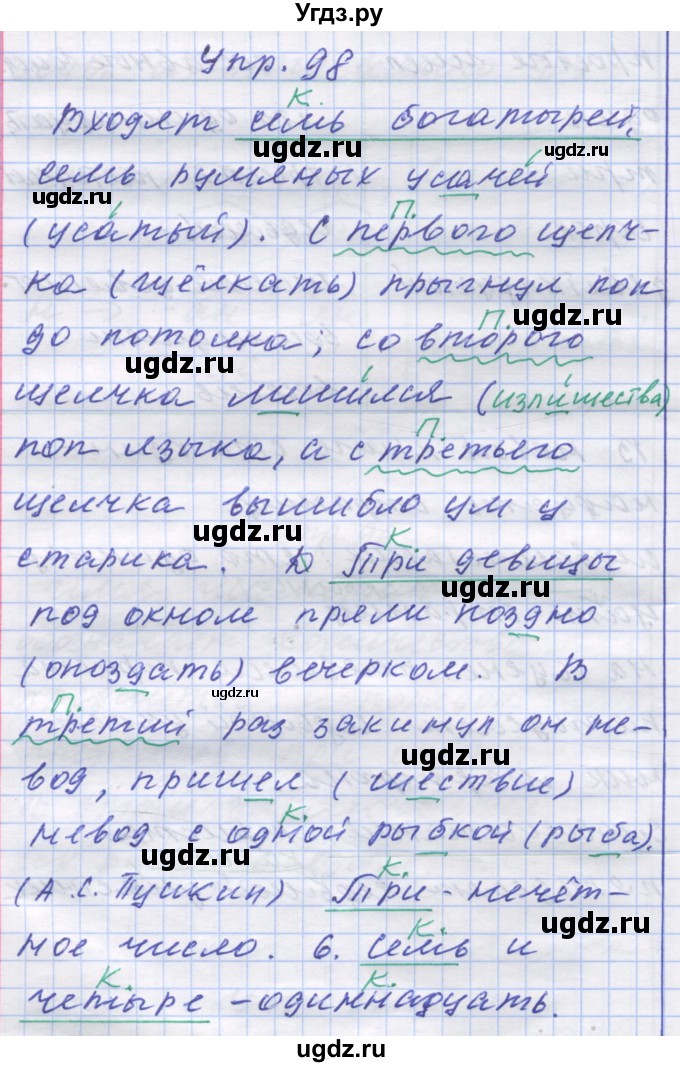 Угдз.ру
Упр. 98
К.
Входят семь богатырей,
ugdz.ru
ugdz.ru
семь румяных усачей
ugdz.ru
П.
(усатый). С первого щелч-
ка (щёлкать) прыгнул поп
ugdz.ru
П.
до потолка; со второго
ugdz.ru
щелчка лишился (излишества)
П.
поп языка, а с третьего
щелчка вышибло ум у
ugdz.ru
К.
старика. Три девицы
под окном пряли поздно
(опоздать) вечерком. В
ugdz.ru
П.
третий раз закинул он не-
ugdz.ru
вод, пришел (шествие)
К.
невод с одной рыбкой (рыба).
ugdz.ru
К.
(А.С. Пушкин) Три - нечёт-
ugdz.ru
К.
ное число. 6. Семь и
К. К.
четыре - одиннадцать.
ugdz.ru